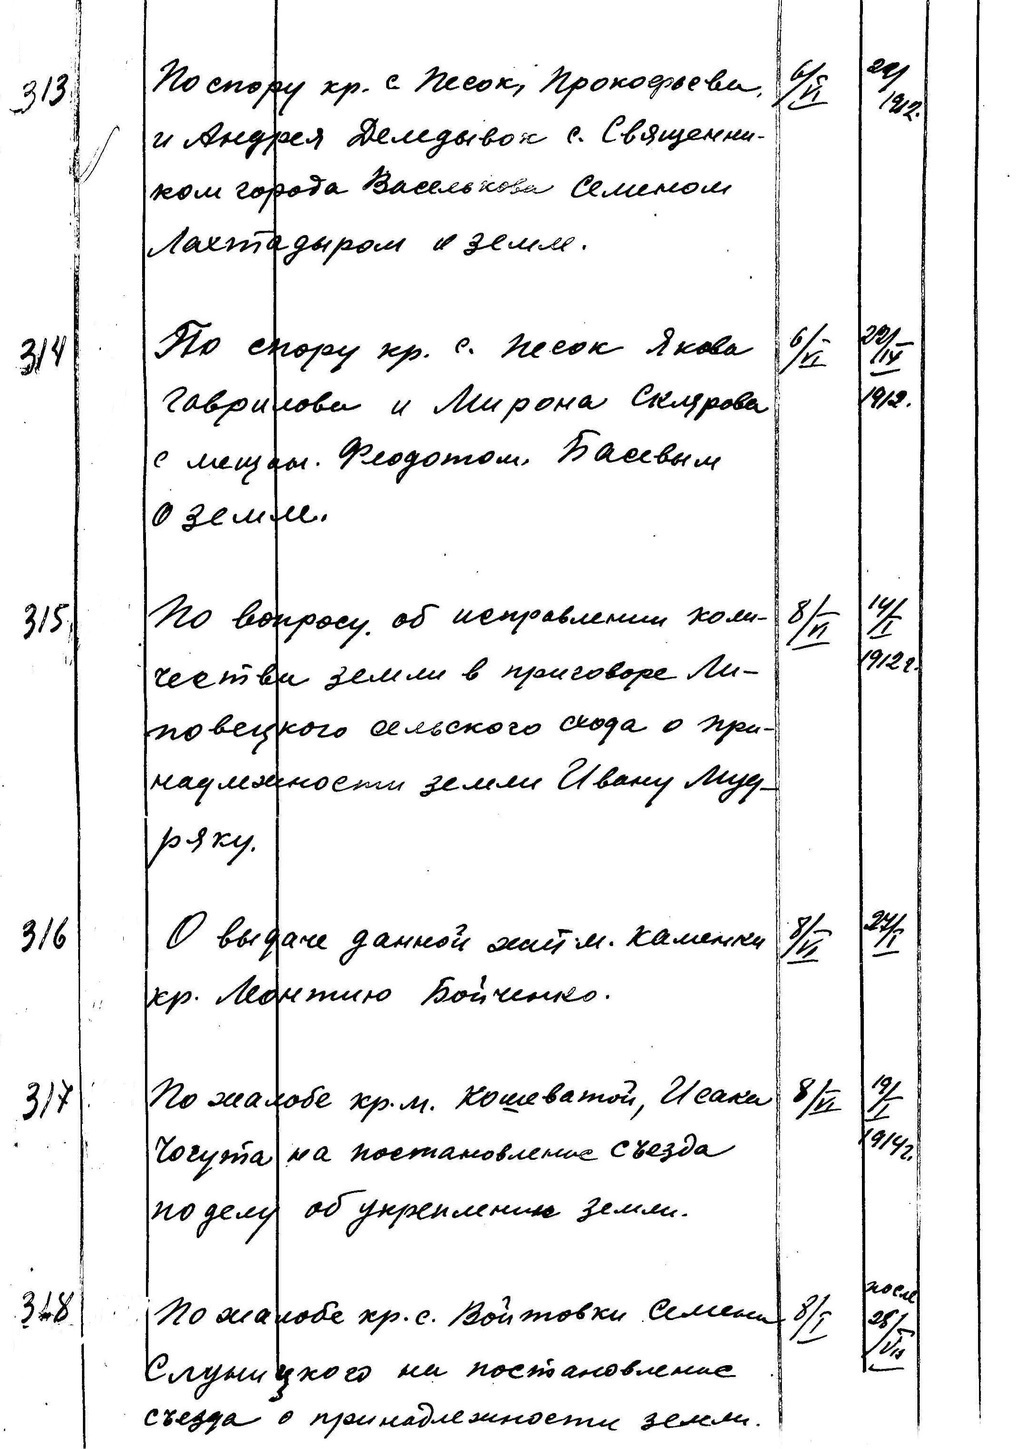 313 По спору кр. с. Песок, Прокофьева, 6/VI 29/
и Андрея Демедывок с. Священни- 1912.
ком города Василькова Семеном
Лахтадыром о земле.
314 По спору кр. с. Песок Якова 6/VI 29/IV
Гаврилова и Мирона Склярова 1912.
с мещан. Феодотом Басевым
о земле.
315 По вопросу об исправлении коли- 8/VI 14/I
чества земли в приговоре Ли- 1912 г.
повецкого сельского схода о при-
надлежности земли Ивану Муд-
ряку.
316 О выдаче данной жит. м. Каменки 8/VI 27/I
кр. Леонтию Бойченко.
317 По жалобе кр. м. Кошеватой, Исака 8/VI 19/I
Чогута на постановление съезда 1914 г.
по делу об укреплении земли.
318 По жалобе кр. с. Войтовки Семена 8/I после
Слуницкого на постановление 28/VII
съезда о принадлежности земли.